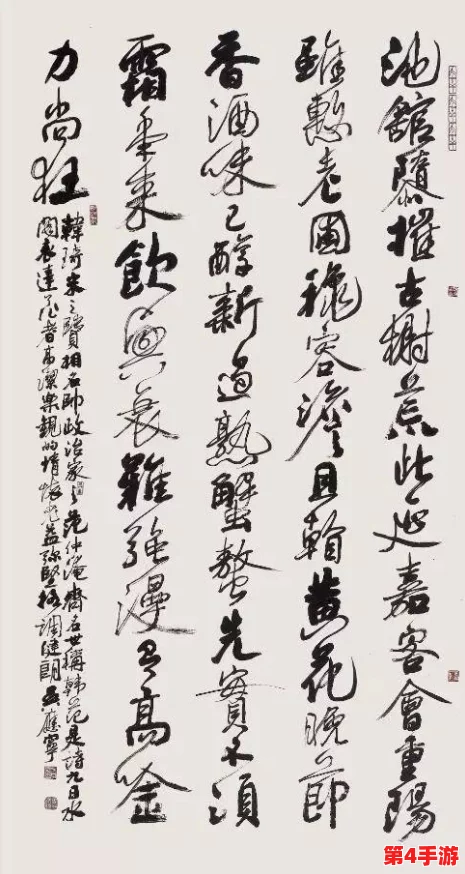 池館隳摧古榭荒此延嘉客會重陽
雖慙老圃穐容澹且看黄花晚節
香酒味已醇新過熟蟹螯先實不須
霜年來飲興衰難強漫有高吟
力尚狂
韓琦宋之賢相名帥政治家范仲淹齊名世稱韓范是詩九日水
閣表達作者高潔樂觀的情怀老益弥堅格調健朗應寧
第4手游